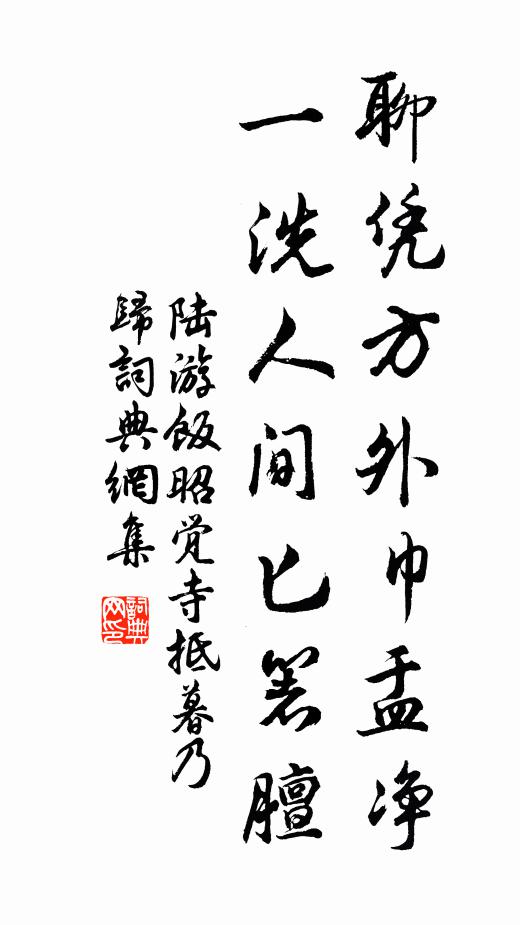 聊凭方外巾盂净
一洗人间匕箸膻
陆游飯昭觉寺抵暮乃
歸詞典網集
詞典网印